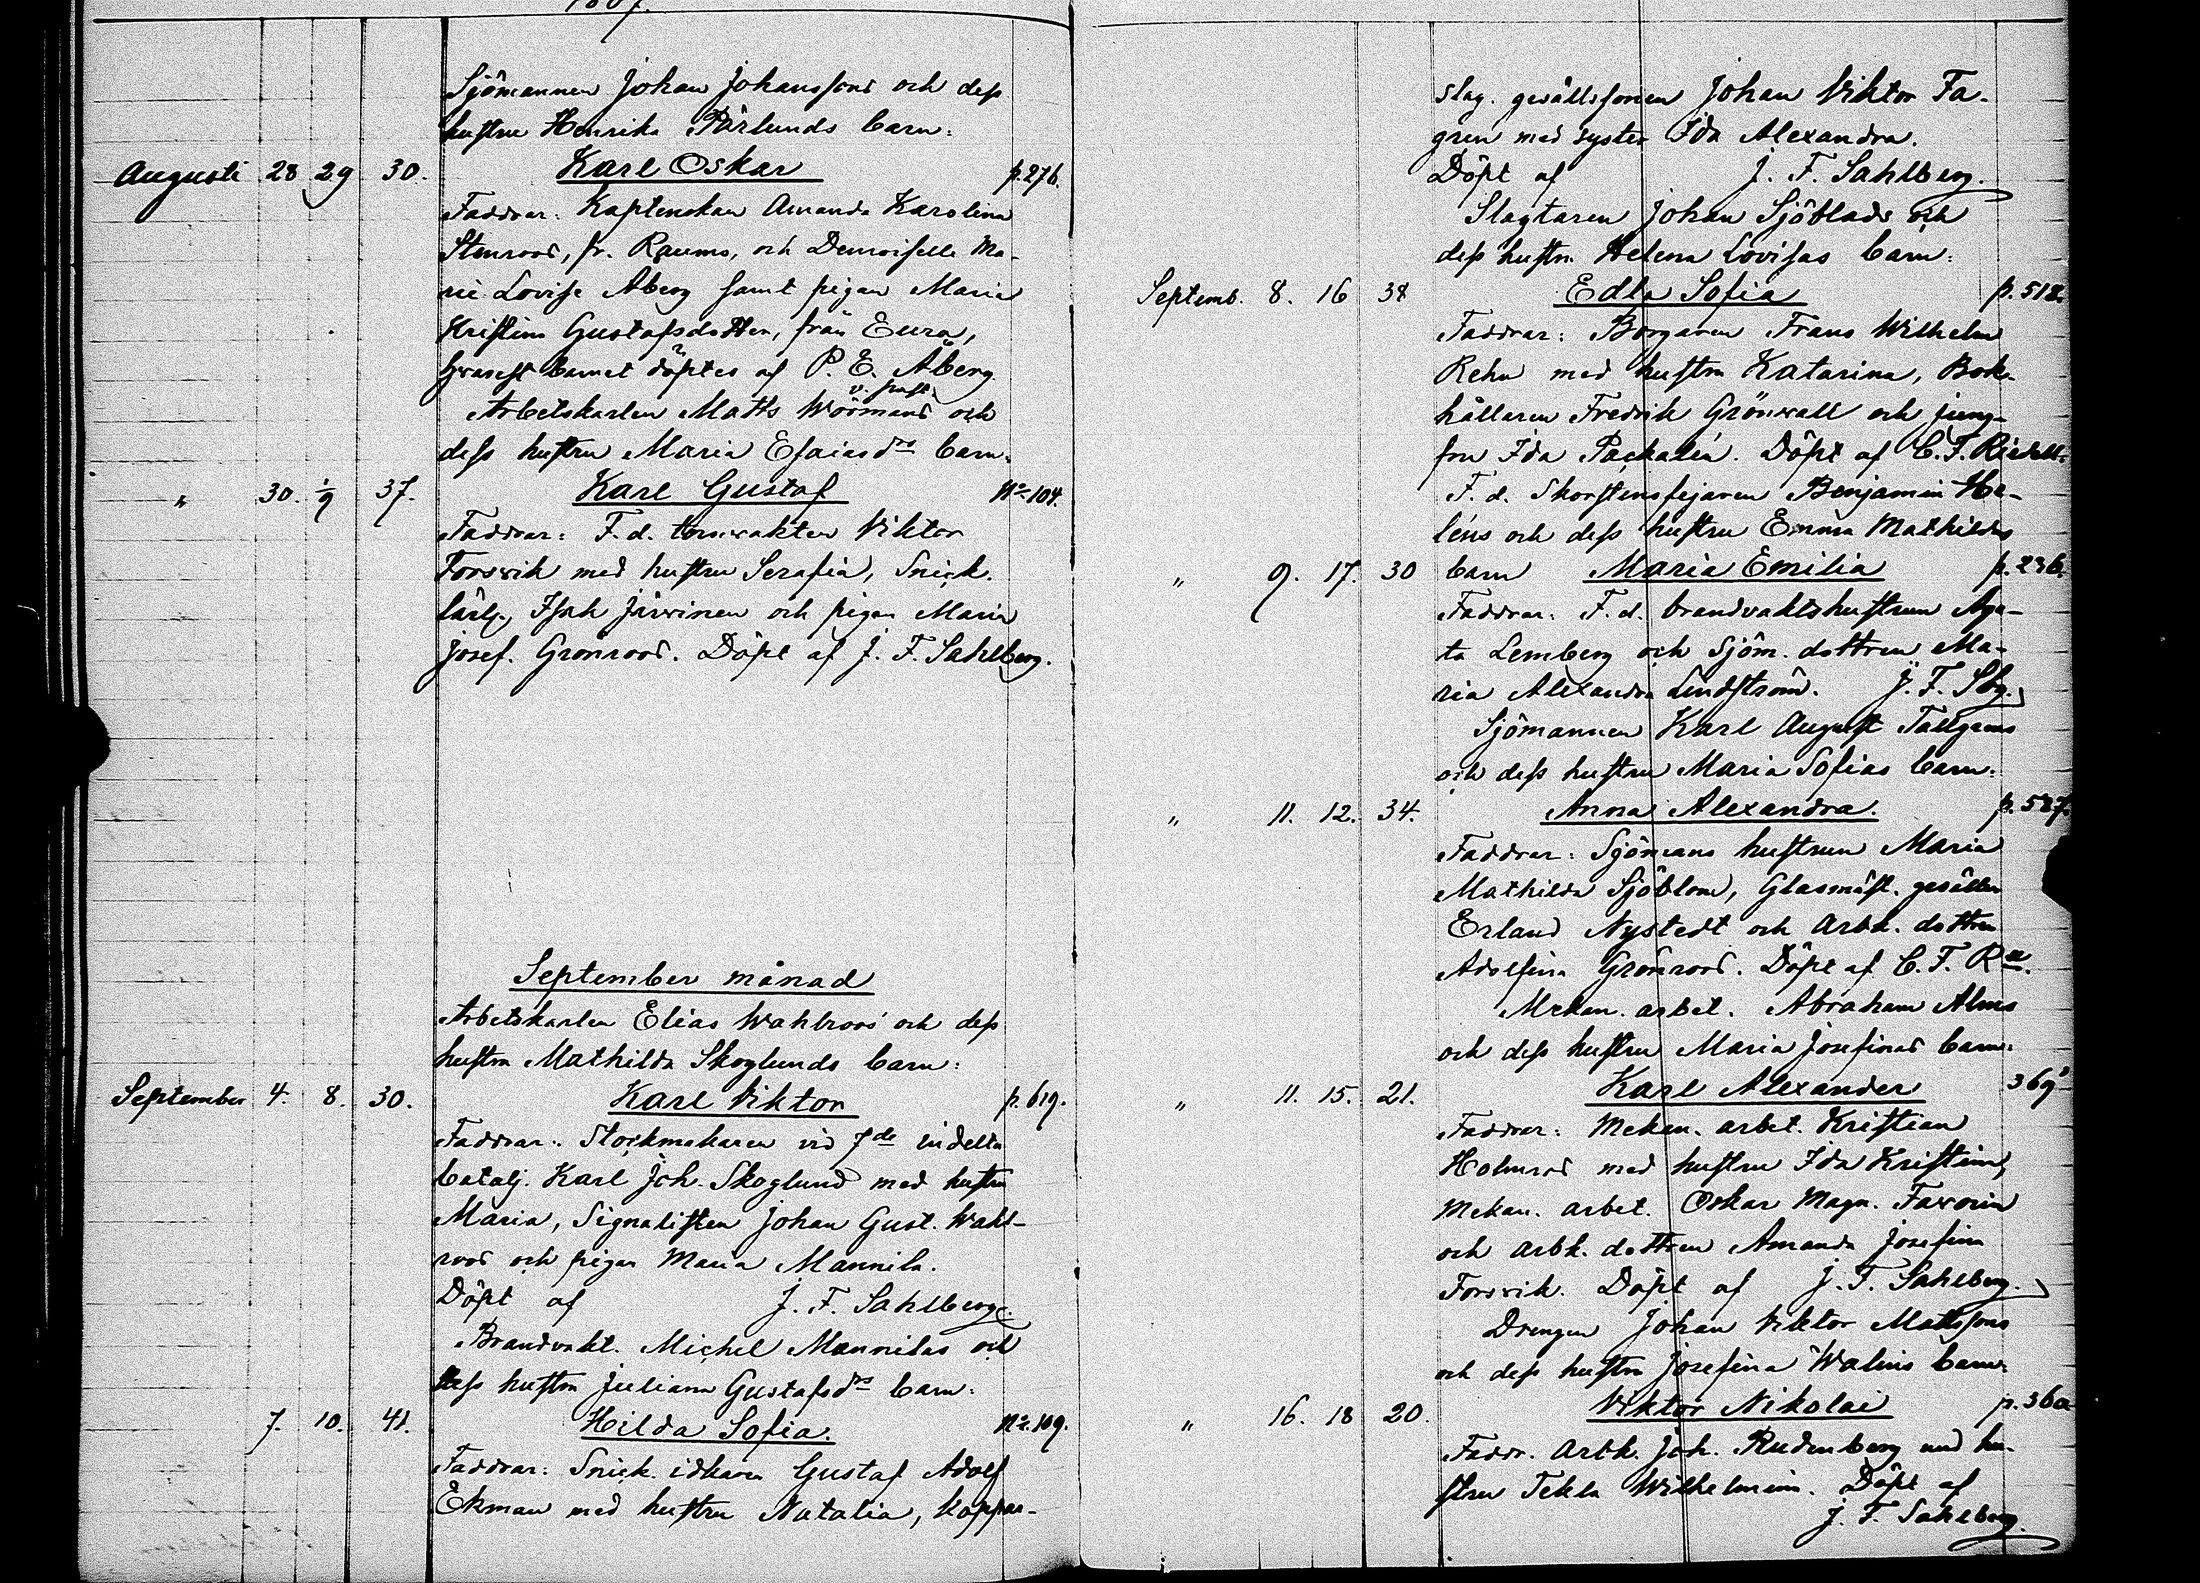 Sjömannen Johan Johanssons och dess
hustru Henrika Pärlunds barn:
Augusti 28 29 30. Karl Oskar p. 276.
Faddrar: Kaptenskan Amanda Karolina
Stenroos, fr. Raumo, och Demoiselle Ma-
rie Lovise Åberg samt pigan Maria
Kristina Gustafsdotter, från Eura,
hvarest barnet döptes af P. E. Åberg.
v. past.
Arbetskarlen Matts Wörmans och
dess hustru Maria Esaiasdrs barn.
„ 30. 1/9 37. Karl Gustaf No 104.
Faddrar: F. d. tornvakten Viktor
Forsvik med hustru Serafia, Snick.
lärl. Isak Järvinen och pigan Maria
Josef. Grönroos. Döpt af J. F. Sahlberg.
September månad
Arbetskarlen Elias Wahlroos' och dess
hustru Mathilda Skoglunds barn:
September 4. 8. 30. Karl Viktor p. 619.
Faddrar: Stockmakaren vid 7de indelta
batalj. Karl Joh. Skoglund med hustru
Maria, Signalisten Johan Gust. Wahl-
roos och pigan Maria Mannila.
Döpt af J. F. Sahlberg.
Brandvakt. Michel Mannilas och
dess hustru Juliana Gustafsdrs barn:
7. 10. 41. Hilda Sofia. No. 109.
Faddrar: Snick. idkaren Gustaf Adolf
Ekman med hustru Natalia, Koppar-
slag. gesällssonen Johan Viktor Fa-
gren med syster Ida Alexandra.
Döpt af J. F. Sahlberg.
Slagtaren Johan Sjöblads och
dess hustru Helena Lovisas barn:
Septemb. 8. 16 38 Edla Sofia p. 518.
Faddrar: Borgaren Frans Wilhelm
Rehn med hustru Katarina, Bok-
hållaren Fredrik Grönvall och jung-
fru Ida Packalén. Döpt af C. F. Ridell.
F. d. Skorstensfejaren Benjamin He-
léns och dess hustru Emma Mathildas
„ 9. 17. 30 barn Maria Emilia p. 236.
Faddrar: F. d. brandvaktshustrun Aga-
ta Lemberg och Sjöm. dottren Ma-
ria Alexandra Lindström. J. F. Sbg.
Sjömannen Karl August Tallgrens
och dess hustru Maria Sofias barn:
„ 11. 12. 34. Anna Alexandra. p. 587.
Faddrar: Sjömans hustrun Maria
Mathilda Sjöblom, Glasmäst. gesällen
Erland Nystedt och arbk. dottren
Adolfina Grönroos. Döpt af C. F. Rll.
Mekan. arbet. Abraham Alms
och dess hustru Maria Josefinas barn:
„ 11. 15. 21. Karl Alexander 369
Faddrar: Mekan. arbet. Kristian
Holmros med hustru Ida Kristina,
Mekan. arbet. Oskar Magn. Favorin
och arbk. dottren Amanda Josefina
Forsvik. Döpt af J. F. Sahlberg.
Drengen Johan Viktor Mattssons
och dess hustru Josefina Walins barn
„ 16. 18 20. Viktor Nikolai p. 360
Faddr. Arbk. Joh. Rudenberg med hu-
stru Tekla Wilhelmina. Döpt af
J. F. Sahlberg.